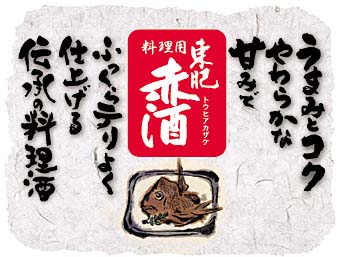 うまみとコク
やわらかな
甘みで
料理用
東肥
赤酒
トウヒアカザケ
ふっくらテリよく
仕上げる
伝承の料理酒